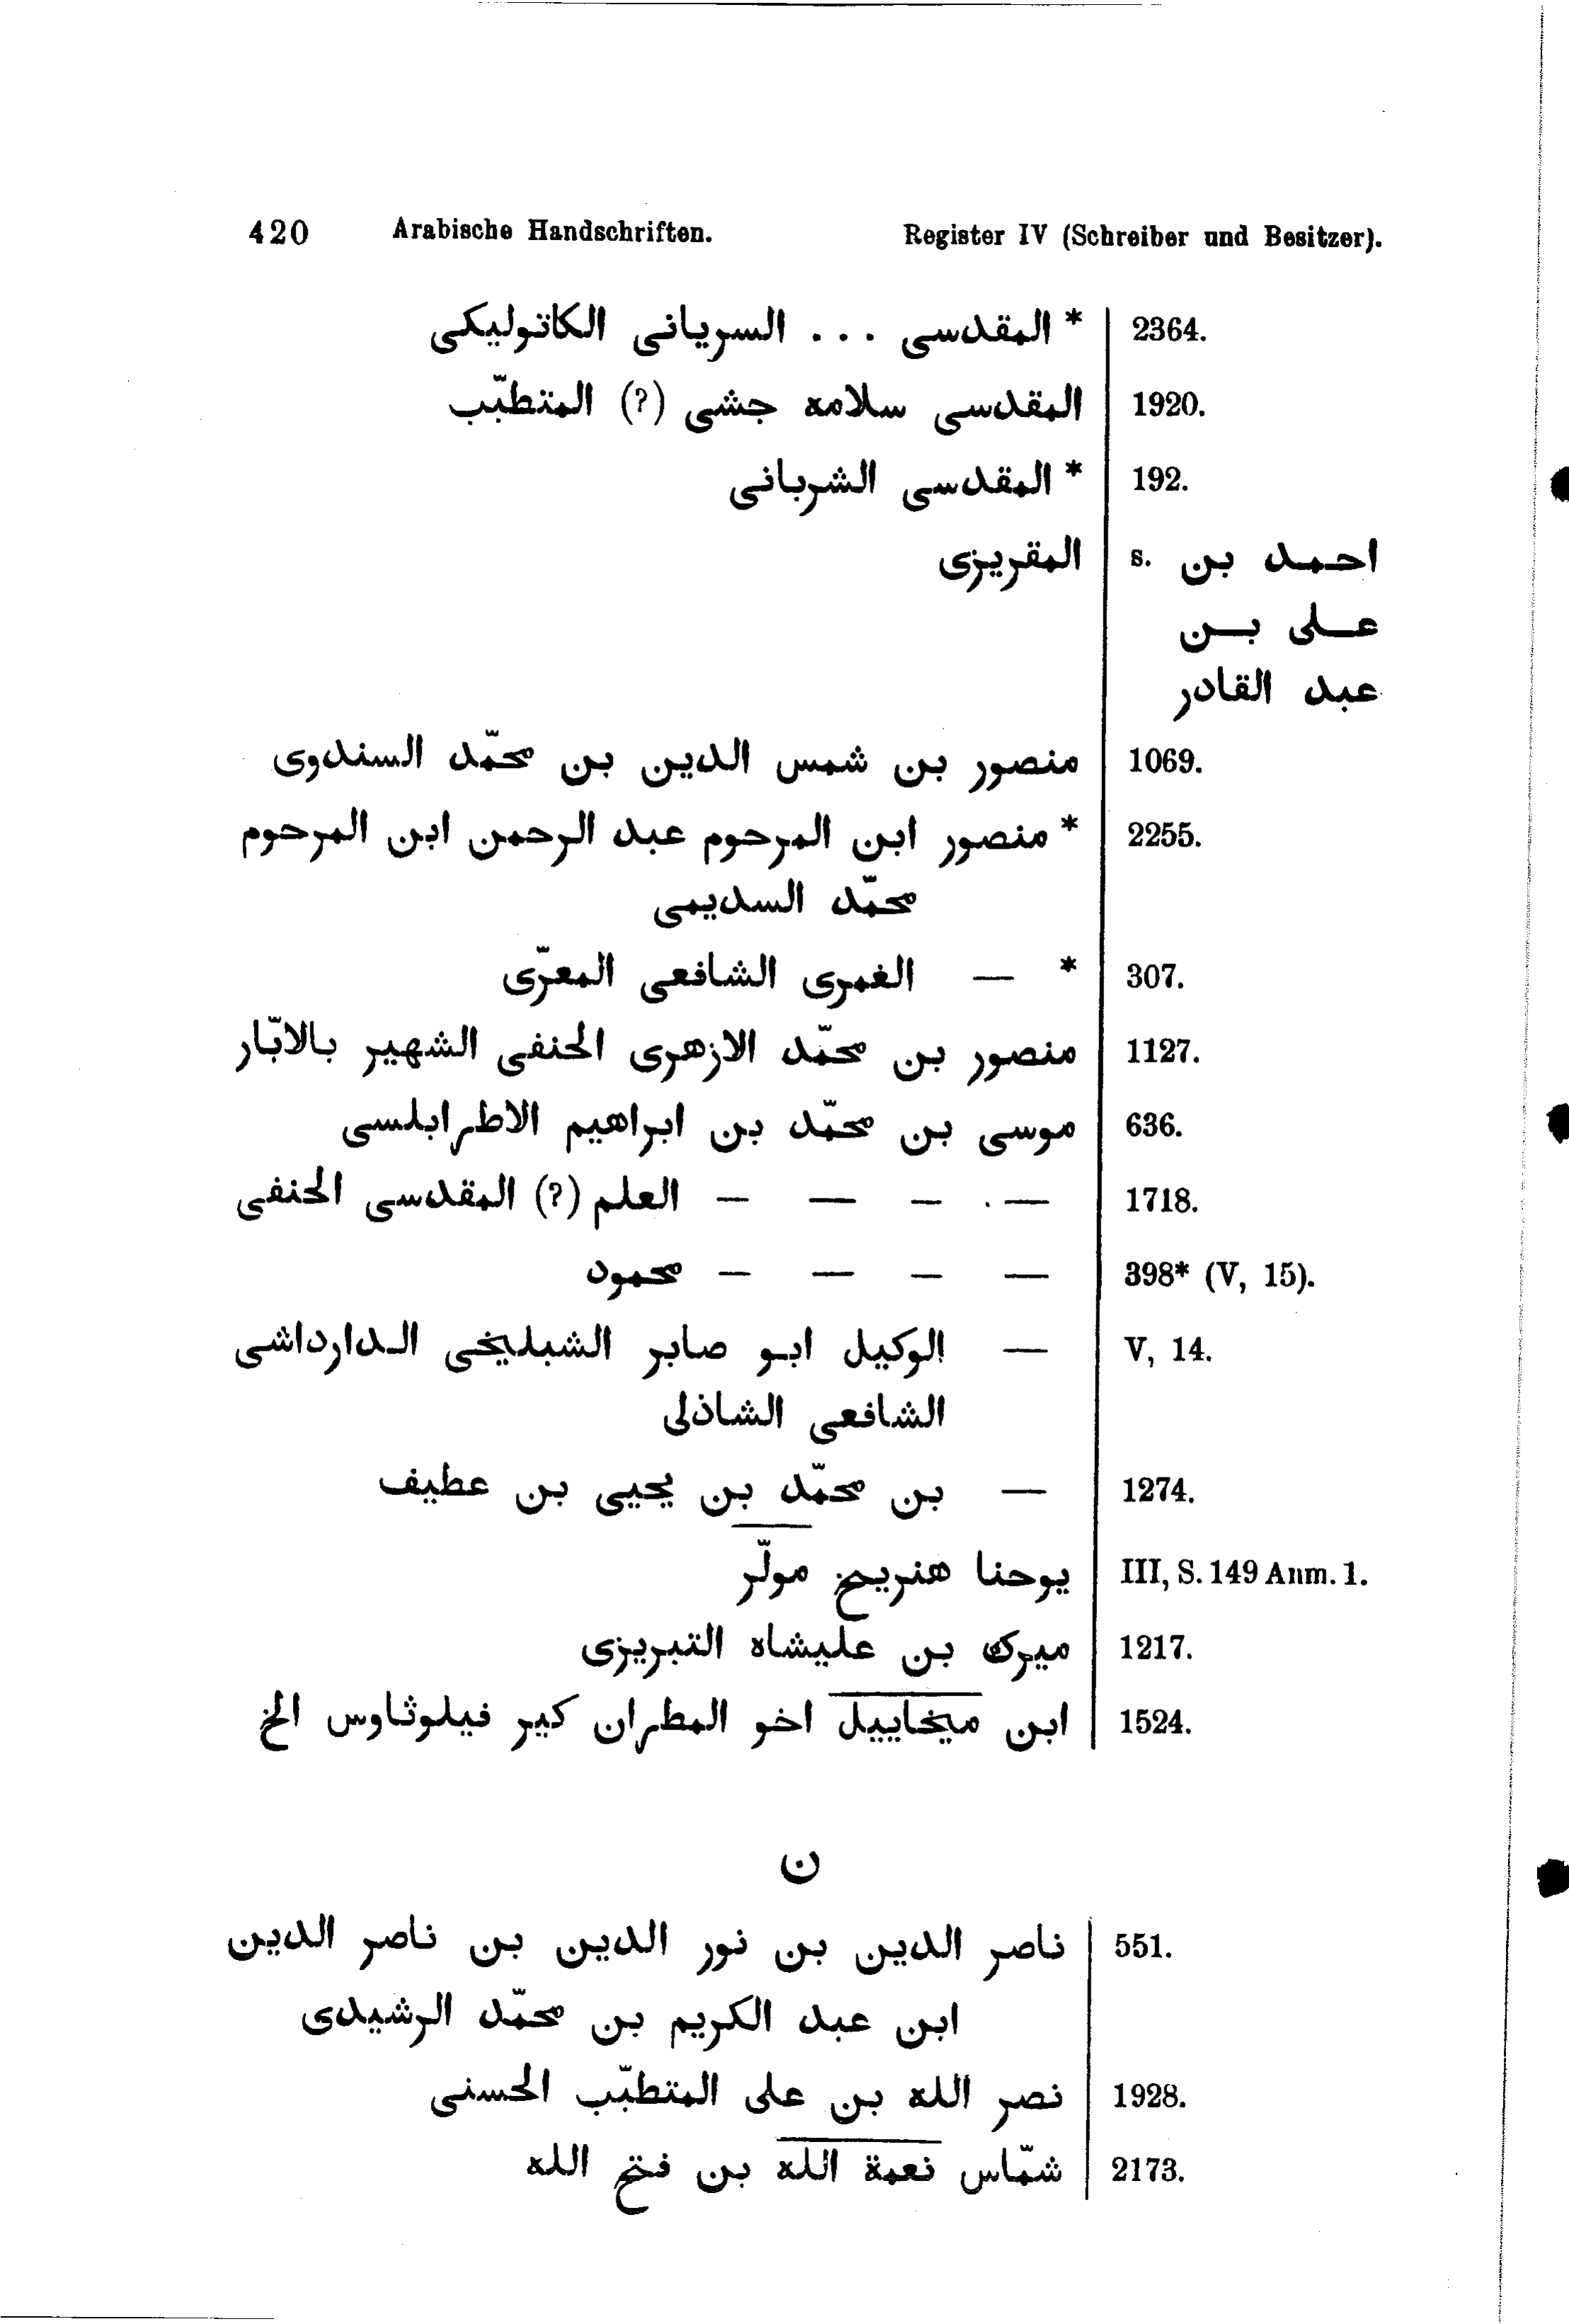 420 Arabische Handschriften. Register IV (Schreiber und Besitzer).
* المقدسى ... السريانى الكاتوليكى 2364.
المقدسى سلامه جشى (?) المتطبّب 1920.
* المقدسى الشربانى 192.
المقريزى s. احمد بن
على بن
عبد القادر
منصور بن شمس الدين بن محمّد السندوى 1069.
* منصور ابن المرحوم عبد الرحمن ابن المرحوم 2255.
محمّد السديمى
* — الغمرى الشافعى المعرّى 307.
منصور بن محمّد الازهرى الحنفى الشهير بالابّار 1127.
موسى بن محمّد بن ابراهيم الاطرابلسى 636.
— — — — العلم (?) المقدسى الحنفى 1718.
— — — — محمود 398* (V, 15).
— الوكيل ابو صابر الشبليخى الدارداشى V, 14.
الشافعى الشاذلى
— بن محمّد بن يحيى بن عطيف 1274.
يوحنا هنريح مولّر III, S. 149 Anm. 1.
ميرك بن عليشاه التبريزى 1217.
ابن ميخاييل اخو المطران كير فيلوثاوس الخ 1524.
ن
ناصر الدين بن نور الدين بن ناصر الدين 551.
ابن عبد الكريم بن محمّد الرشيدى
نصر الله بن على المتطبّب الحسنى 1928.
شمّاس نعمة الله بن فتح الله 2173.